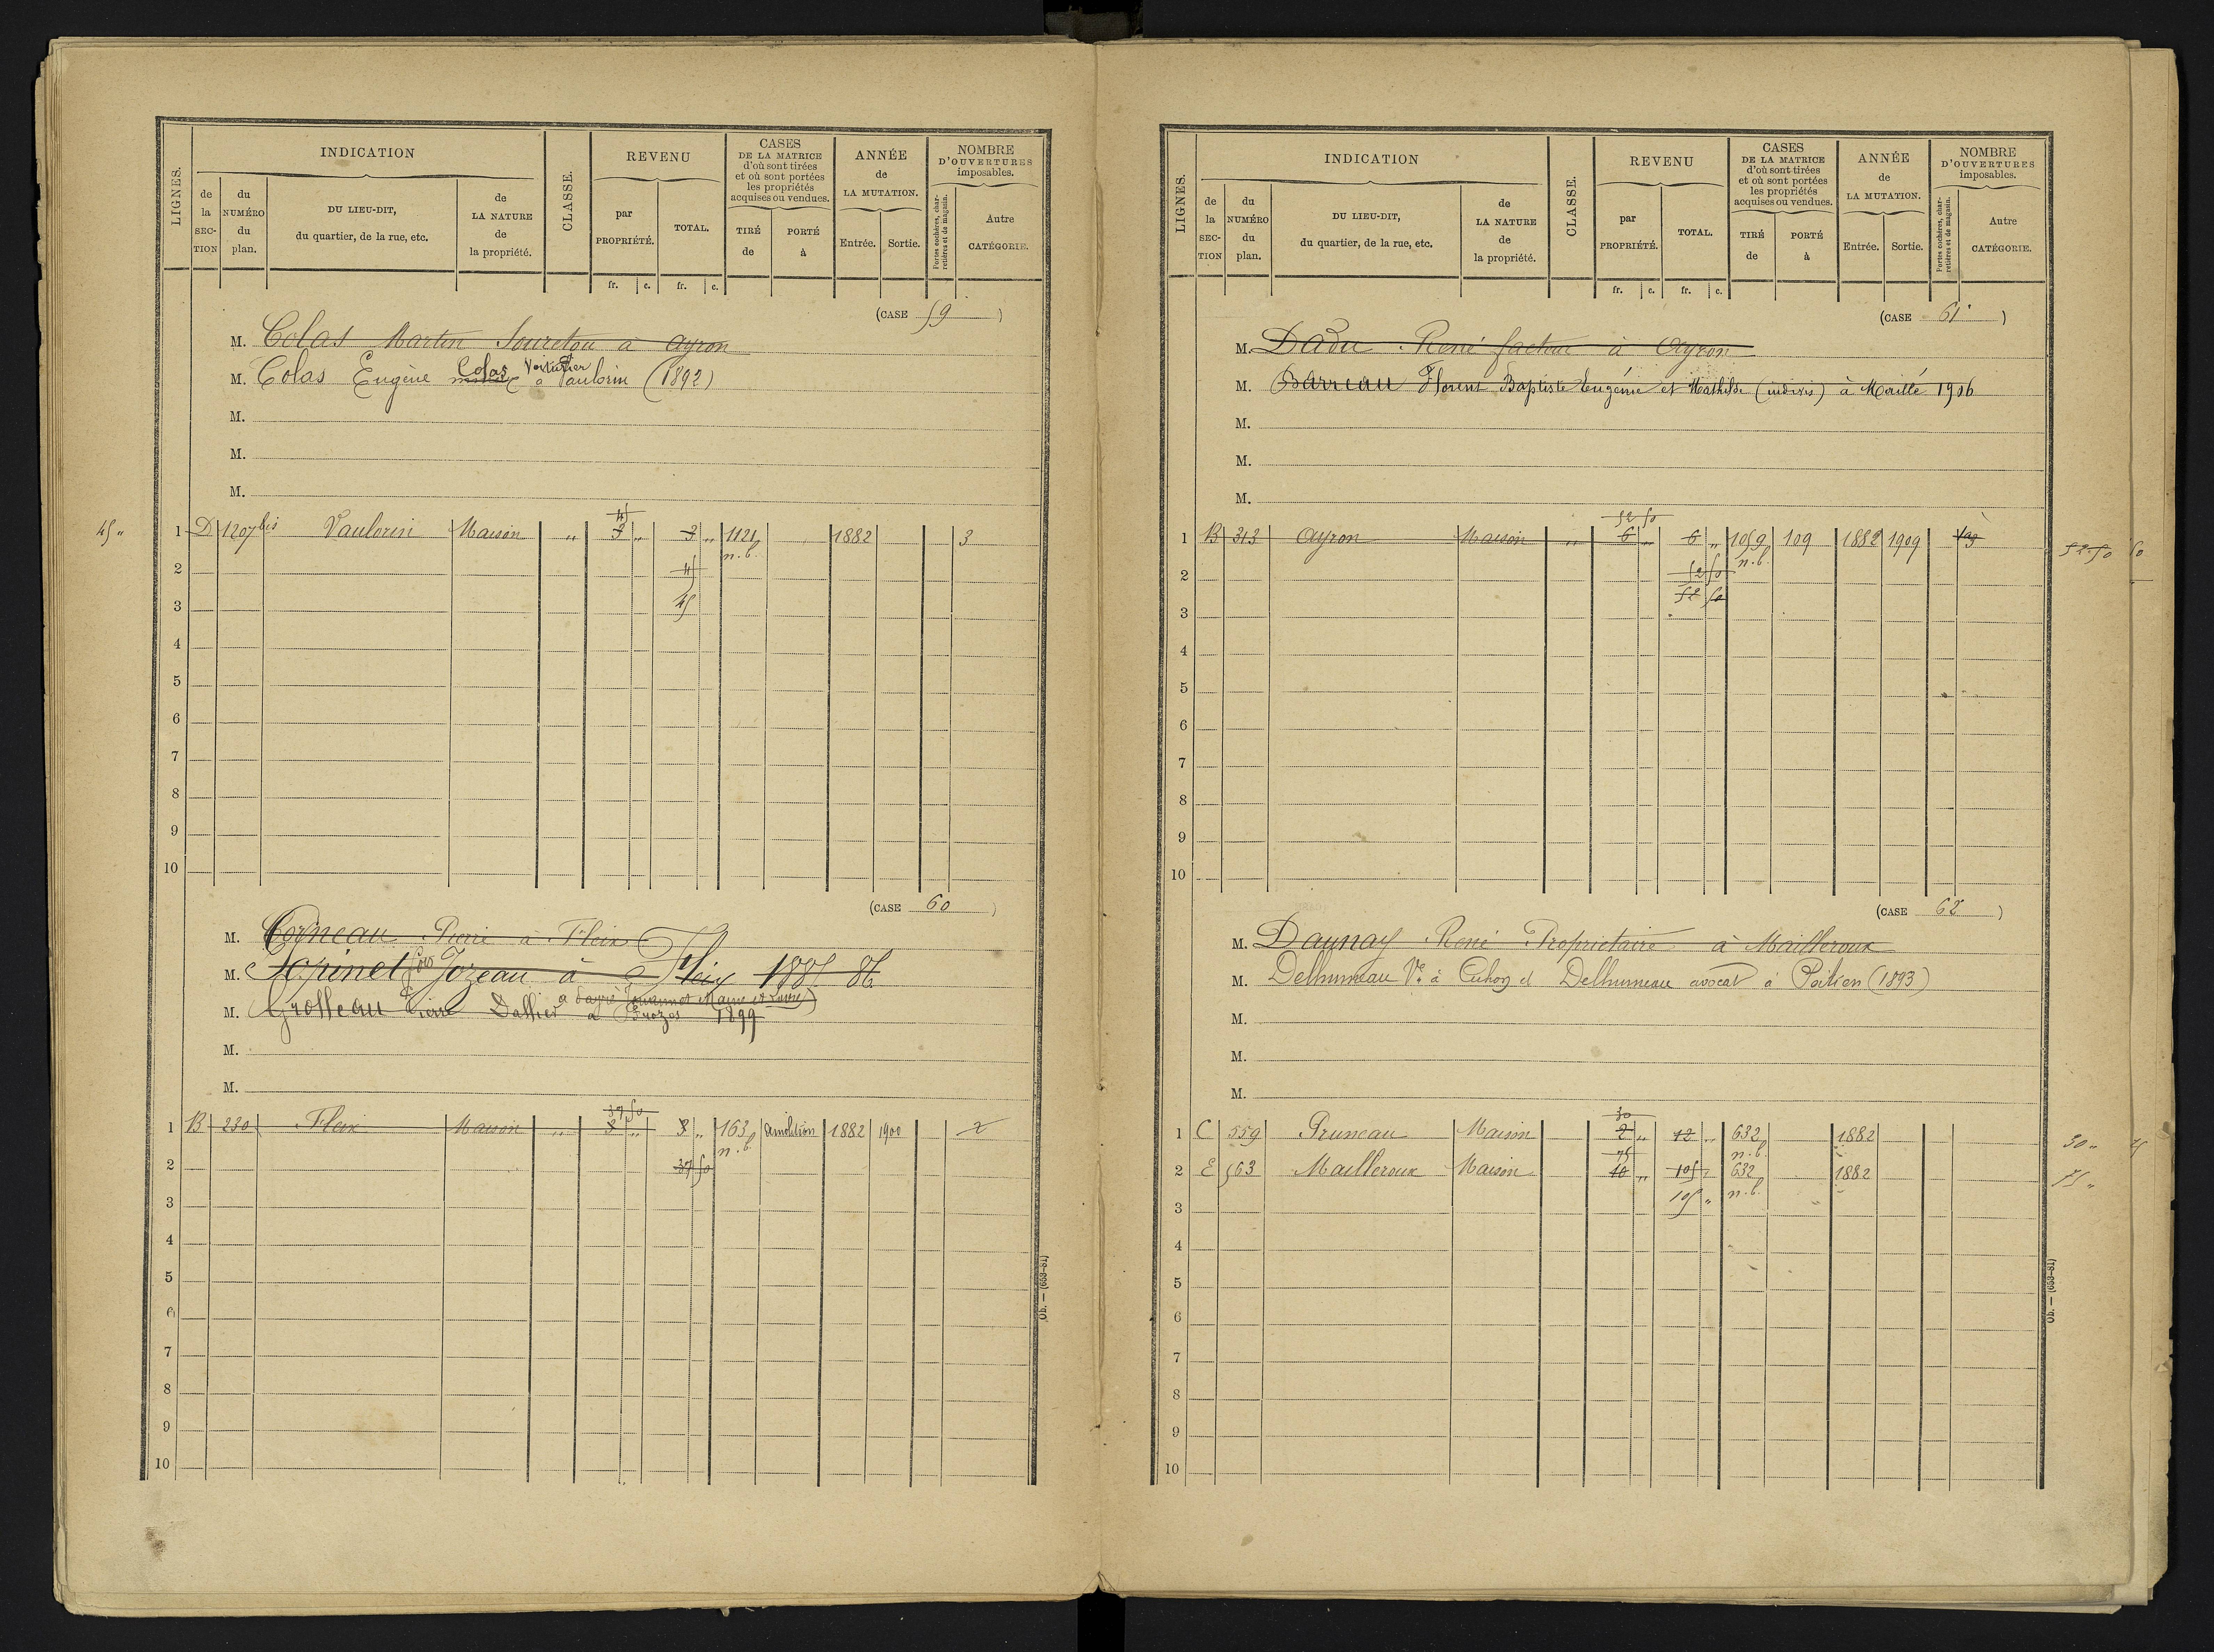 LIGNES.
INDICATION
de la SECTION
du NUMÉRO du plan.
DU LIEU-DIT, du quartier, de la rue, etc.
de LA NATURE de la propriété.
CLASSE.
REVENU
par PROPRIÉTÉ.
TOTAL.
fr. c. fr. c.
CASES DE LA MATRICE d'où sont tirées et où sont portées les propriétés acquises ou vendues.
TIRÉ de
PORTÉ à
ANNÉE de LA MUTATION.
Entrée. Sortie.
NOMBRE D'OUVERTURES imposables.
Portes cochères, charretières et de magasin.
Autre CATÉGORIE.
(CASE 59)
M. Colas Martin Soureton à Ayron
Colas Voiturier
M. Colas Eugène à Vaulorin (1892)
M.
M.
M.
45
45 „ 1 D 1207 bis Vaulorin Maison „ 3 „ 3 „ 1121 1882 3
n.b.
2 45
3 45
4
5
6
7
8
9
10
(CASE 60)
M. Corneau Pierre à Fleix
M. Sapinet Jozeau à Fleix 1885 86
M. Grolleau Pierre à Frozes 1899
M.
M.
37 50
1 B 230 Fleix Maison „ 3 „ 3 „ 163 démolition 1882 1900 2
n.b.
2 37 50
3
4
5
6
7
8
9
10
Ob. — (653-81)
LIGNES.
INDICATION
de la SECTION
du NUMÉRO du plan.
DU LIEU-DIT, du quartier, de la rue, etc.
de LA NATURE de la propriété.
CLASSE.
REVENU
par PROPRIÉTÉ.
TOTAL.
fr. c. fr. c.
CASES DE LA MATRICE d'où sont tirées et où sont portées les propriétés acquises ou vendues.
TIRÉ de
PORTÉ à
ANNÉE de LA MUTATION.
Entrée. Sortie.
NOMBRE D'OUVERTURES imposables.
Portes cochères, charretières et de magasin.
Autre CATÉGORIE.
(CASE 61)
M. Dadu René facteur à Ayron
M. Barreau Florent Baptiste Eugénie et Mathilde (indivis) à Maillé 1906
M.
M.
M.
52 50
1 B 313 Ayron Maison „ 6 „ 6 „ 1059 109 1882 1909 52.50
n.b.
2 52 50
3 52 50
4
5
6
7
8
9
10
(CASE 62)
M. Daunay René Propriétaire à Mailleroux
M. Delhumeau Ve à Cuhon et Delhumeau avocat à Poitiers (1893)
M.
M.
M.
30
1 C 559 Pruneau Maison 2 „ 12 „ 632 1882 30 „
75 n.b.
2 E 563 Mailleroux Maison 10 „ 105 632 1882 75 „
105 „ n.b.
3
4
5
6
7
8
9
10
Ob. — (653-81)